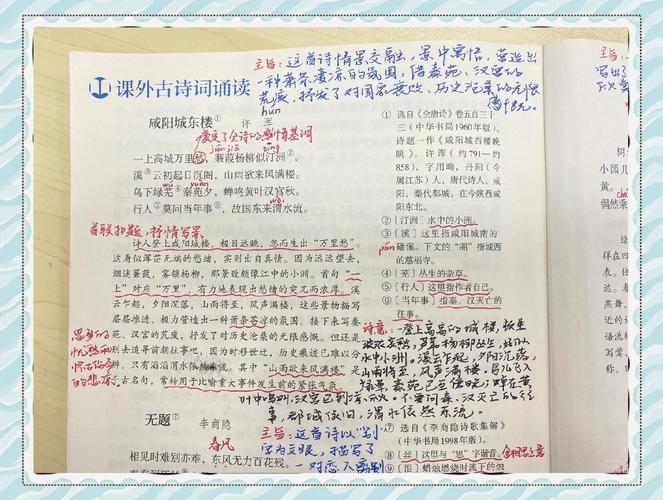 主旨：这首诗情景交融，景中寓情，营造出
一种萧条凄凉的氛围，借秦苑、汉宫的
荒废，抒发了对国家衰败、历史沿革的无限
感慨。
课外古诗词诵读
咸阳城东楼①
许浑
hún
奠定了全诗的感情基调
jiān jiā
tīng
一上高城万里愁，蒹葭杨柳似汀洲②。
溪③云初起日沉阁，山雨欲来风满楼。
wú
yuàn
鸟下绿芜④秦苑夕，蝉鸣黄叶汉宫秋。
wèi
行人⑤莫问当年事⑥，故国东来渭水流。
首联扣题，抒情写景
诗人登上咸阳城楼，极目远眺，忽而生出“万里愁”。
这看似浑茫无端的愁绪，实则出自真情。因为远远望去，
烟迷蒹葭，雾锁杨柳，那景致颇像江中的小洲。首句“一
上”对应“万里”，有力地表现出愁绪的突兀而浓厚。溪
云乍起，夕阳沉落，山雨将至，风声满楼，这些景物描写
层层推进，极力营造出一种萧条苍凉的氛围。接下来写秦
苑、汉宫的荒废，抒发了对历史沧桑的无限感慨。但还是
别去追寻前朝往事吧，因为时移世迁，历史痕迹已难以分
辨，只有滔滔渭水依然东流。其中“山雨欲来风满楼”是
千古名句，常用于比喻重大事件发生前的紧张气氛。
① 选自《全唐诗》卷五百三十
三（中华书局1960年版）。
诗题一作《咸阳城西楼晚
眺》。许浑（约791—约
858），字用晦，丹阳（今
属江苏）人，唐代诗人。咸
阳，秦代都城，在今陕西咸
阳东北。
② ［汀洲］水中的小洲。
③ ［溪］这里指咸阳城南的
pán
磻溪。下文的“阁”指城西
的慈福寺。
④ ［芜］丛生的杂草。
⑤ ［行人］这里指作者自己。
⑥ ［当年事］指秦、汉灭亡的
往事。
诗意：一登上高高的城楼，
水中小洲。溪云乍起，夕阳沉落，
山雨将至，风声满楼。
事，都城依旧，渭水依然东流。
无题⑦
李商隐
春风
相见时难别亦难，东风无力百花残。
主旨：这首诗以“别”
字为文眼，描写了
一对恋人离别
⑦ 选自《李商隐诗歌集解》
（中华书局1998年版）。
⑧ ［丝］这里与“思”字谐音。
⑨ ［泪］蜡烛燃烧时流下的烛